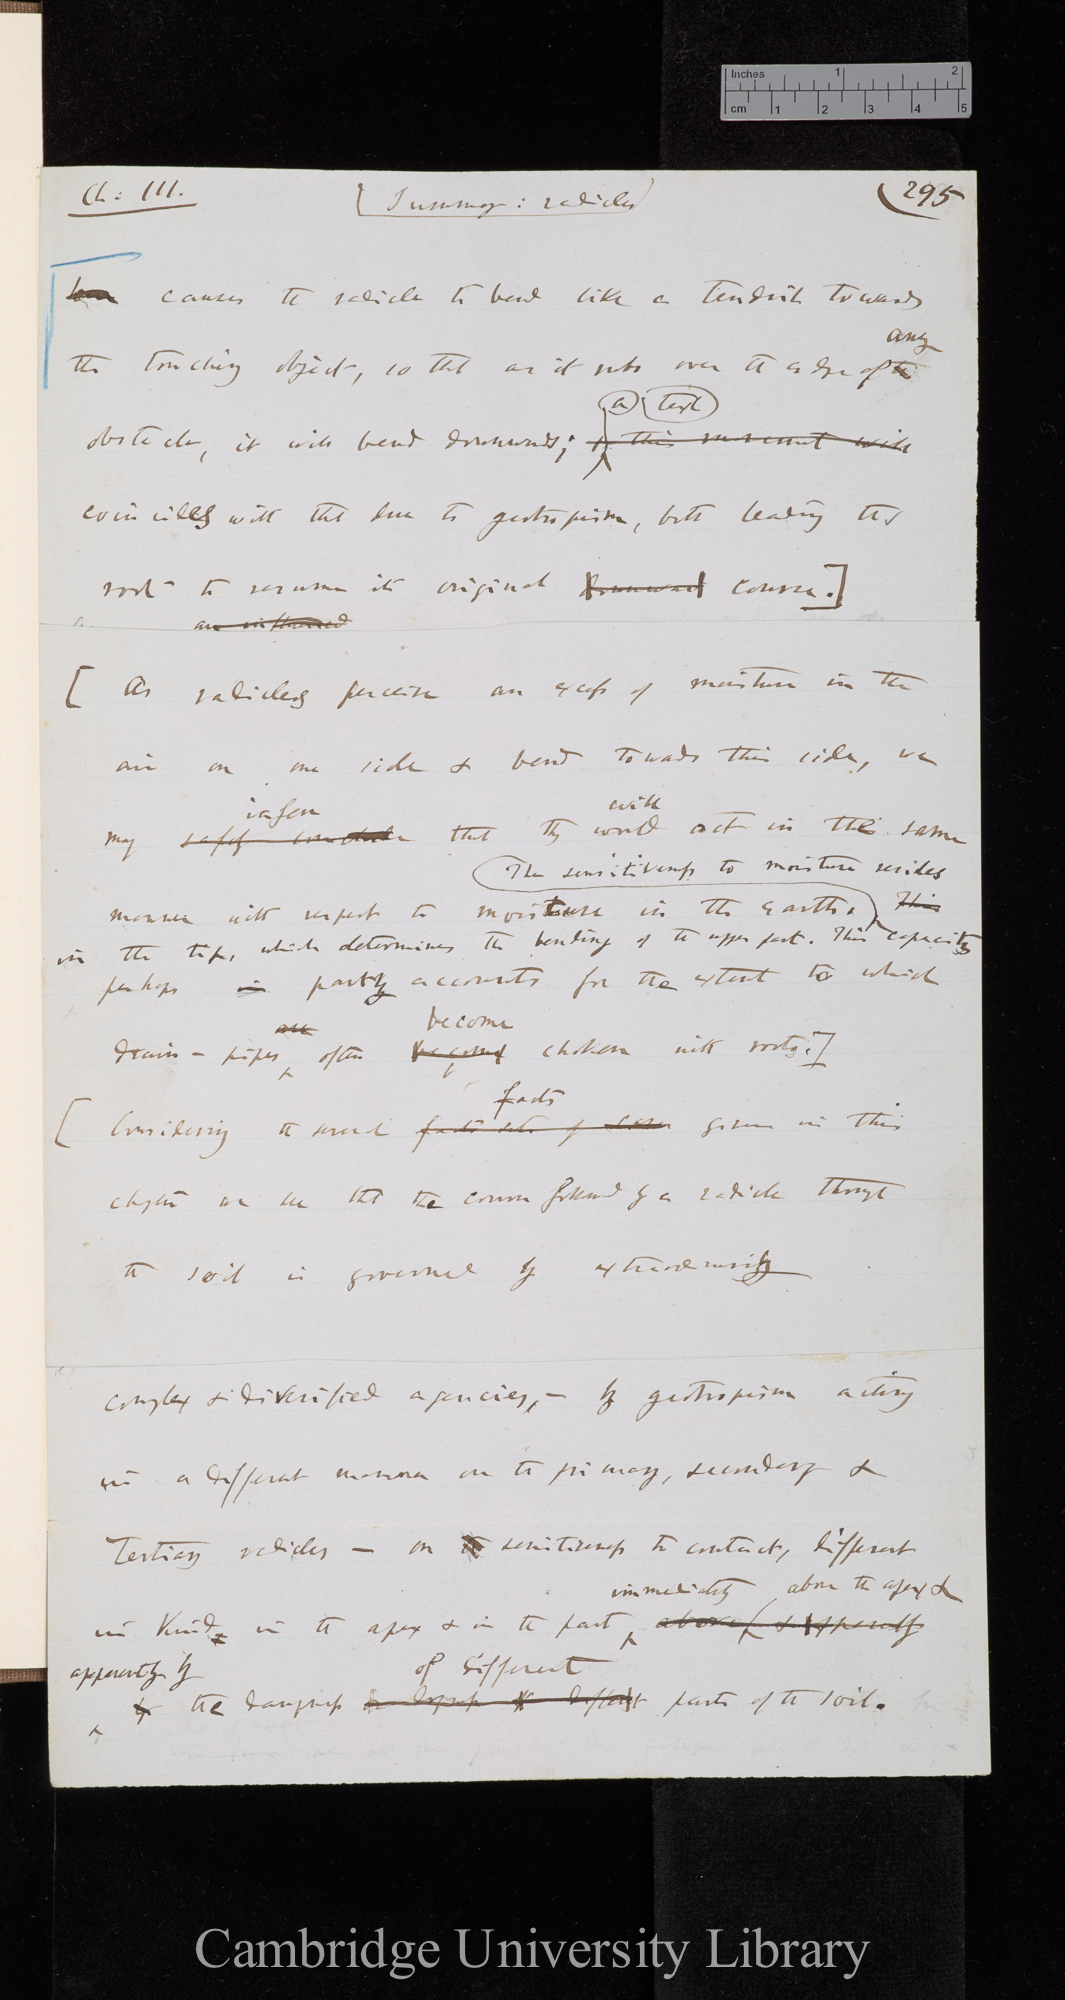 Inches 1 2
cm 1 2 3 4 5
Ch: III.
[Summary: radicles
(295
causes the radicle to bend like a tendril towards
any
the touching object, so that as it rubs over the edge of the
(a) (text)
obstacle, it will bend downwards; & this movement will
coincides with that due to geotropism, both leading the
root to resume its original downward course.]
[As radicles perceive an excess of moisture in the
air on one side & bend towards this side, we
infer will
may safely conclude that they would act in the same
The sensitiveness to moisture resides
manner with respect to moisture in the earth. This
in the tip, which determines the bending of the upper part. This capacity
perhaps in partly accounts for the extent to which
are become
drain-pipes often choken with roots.]
facts
[Considering the several given in this
chapter we see that the course followed by a radicle through
the soil is governed by extraordinarily
complex & diversified agencies,— by geotropism acting
in a different manner on the primary, secondary &
tertiary radicles — on sensitiveness to contact, different
immediately above the apex &
in kind in the apex & in the part above & apparently
apparently by
of different
by the dampness parts of the soil.
Cambridge University Library